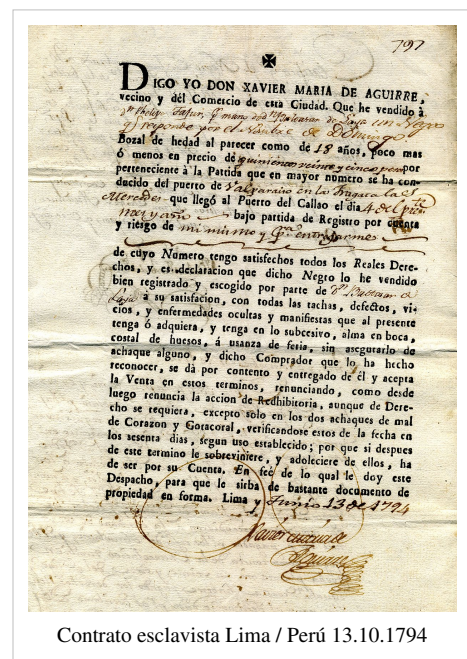 797
DIGO YO DON XAVIER MARIA DE AGUIRRE,
vecino y dél Comercio de esta Ciudad. Que he vendido à
un Negro
q. responde por el Nombre de Domingo
Bozal de hedad al parecer como de 18 años, poco mas
ó menos en precio de quinientos veinte y cinco pesos por
perteneciente à la Partida que en mayor número se ha con-
ducido del puerto de Valparaiso en la fragata las
Mercedes que llegó al Puerto del Callao el dia 4 del pres.te
mes y año bajo partida de Registro por cuenta
y riesgo de mi mismo y
de cuyo Numero tengo satisfechos todos los Reales Dere-
chos, y es declaracion que dicho Negro lo he vendido
bien registrado y escogido por parte de dn Baltasar de
Laya à su satisfacion, con todas las tachas, defectos, vi-
cios, y enfermedades ocultas y manifiestas que al presente
tenga ó adquiera, y tenga en lo subcesivo, alma en boca,
costal de huesos, á usanza de feria, sin asegurarlo de
achaque alguno, y dicho Comprador que lo ha hecho
reconocer, se dà por contento y entregado de él y acepta
la Venta en estos terminos, renunciando, como desde
luego renuncia la accion de Redhibitoria, aunque de Dere-
cho se requiera, excepto solo en los dos achaques de mal
de Corazon y Gotacoral, verificandose estos de la fecha en
los sesenta dias, segun uso establecido; por que si despues
de este termino le sobreviniere, y adoleciere de ellos, ha
de ser por su Cuenta. En feé de lo qual le doy este
Despacho, para que le sirba de bastante documento de
propiedad en forma. Lima y Junio 13 de 1794
Xavier Maria de
Aguirre
Contrato esclavista Lima / Perú 13.10.1794